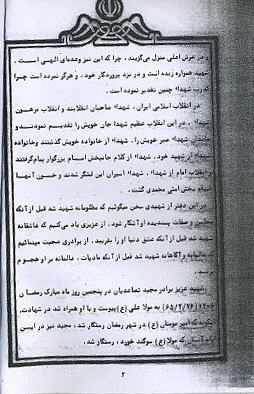 و در عرش اعلی منزل می‌گزیند، چرا که این نیز وعده‌ای الهی است.
شهید همواره زنده است و در نزد پروردگار خود، و هرگز نمرده است چرا
که رب شهدا چنین تقدیر نموده است.
در انقلاب اسلامی ایران، شهدا صاحبان انقلابند و انقلاب مرهون
شهدا، در این انقلاب عظیم شهدا جان خویش را تقدیم نمودند و
شهدا صبر خویش را، شهدا از خانواده خویش گذشتند و خانواده
از شهید خود، شهدا از کلام جانبخش امام بزرگوار پیام گرفتند
و انقلاب امام از شهدا، شهدا اسیران این لشگر شدند و خون آنها
الهام بخش امتی مجددی گشت.
در این دفتر از شهیدی سخن میگوئیم که مظلومانه شهید شد قبل از آنکه
و صفات پسندیده او آشکار شود. از عزیزی یاد می‌کنیم که عاشقانه
شهید شد قبل از آنکه عشق دنیا او را بفریبد. از برادری صحبت مینمائیم
که عالمانه و آگاهانه شهید شد قبل از آنکه مادیات، ظالمانه بر او هجوم
برسد.
شهید عزیز برادر مجید تضاعدیان در پنجمین روز ماه مبارک رمضان
۱۴۰۶ (۶۵/۲/۲۶) به مولا علی (ع) پیوست و با او همراه شد در شهادت.
که امیر مومنان (ع) در شهر رمضان رستگار شد، مجید نیز در ایبن
که مولا (ع) سوگند خورد، رستگار شد.
۲